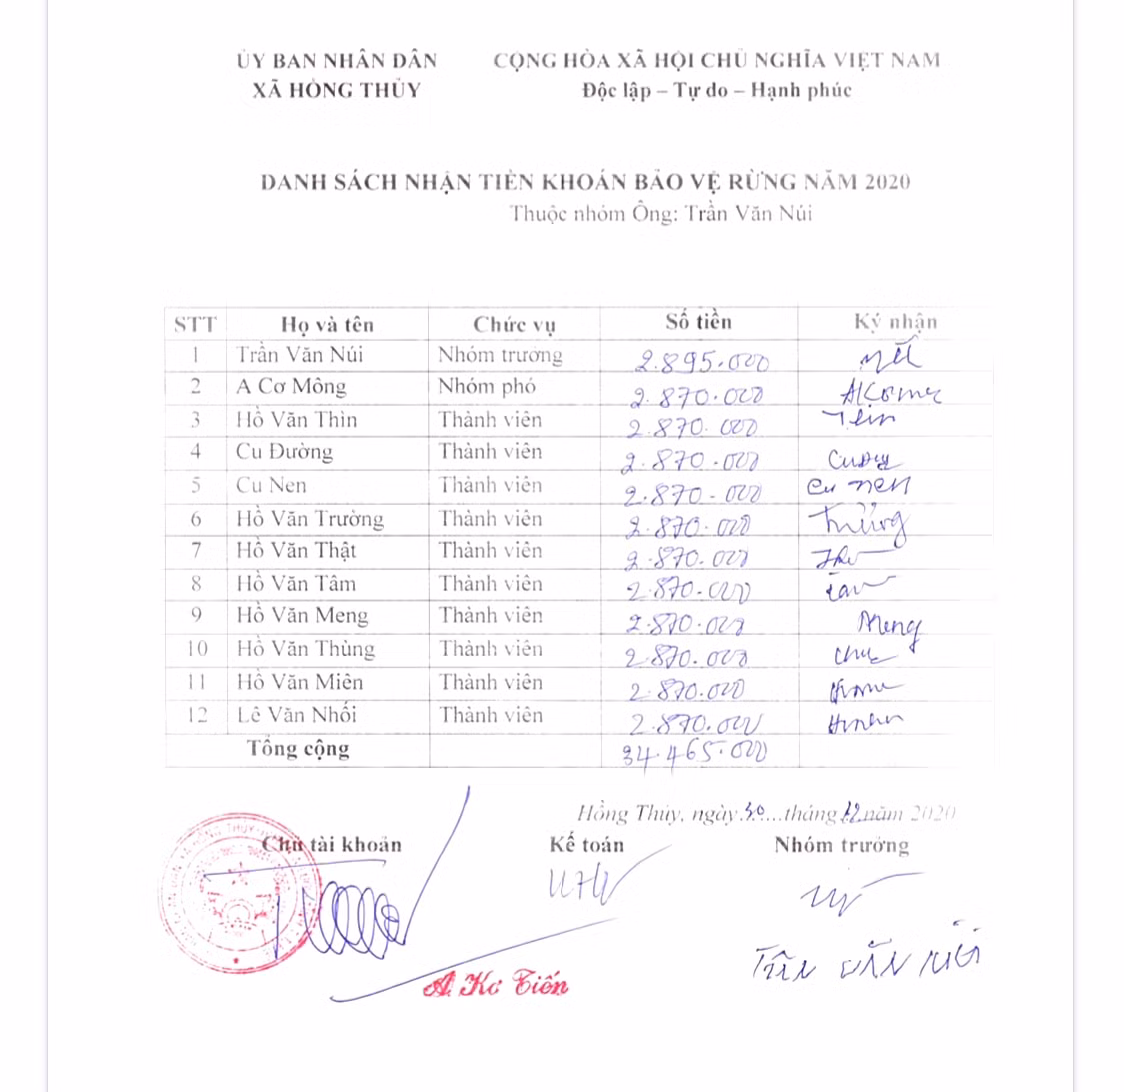 ỦY BAN NHÂN DÂN CỘNG HÒA XÃ HỘI CHỦ NGHĨA VIỆT NAM
XÃ HỒNG THỦY Độc lập – Tự do – Hạnh phúc
DANH SÁCH NHẬN TIỀN KHOÁN BẢO VỆ RỪNG NĂM 2020
Thuộc nhóm Ông: Trần Văn Núi
STT Họ và tên Chức vụ Số tiền Ký nhận
1 Trần Văn Núi Nhóm trưởng 2.895.000
2 A Cơ Mông Nhóm phó 2.870.000
3 Hồ Văn Thìn Thành viên 2.870.000
4 Cu Đường Thành viên 2.870.000
5 Cu Nen Thành viên 2.870.000 Cu nen
6 Hồ Văn Trường Thành viên 2.870.000 Trường
7 Hồ Văn Thật Thành viên 2.870.000
8 Hồ Văn Tâm Thành viên 2.870.000
9 Hồ Văn Meng Thành viên 2.870.000 Meng
10 Hồ Văn Thùng Thành viên 2.870.000
11 Hồ Văn Miên Thành viên 2.870.000
12 Lê Văn Nhối Thành viên 2.870.000
Tổng cộng 34.465.000
Hồng Thủy, ngày 30...tháng 12 năm 2020
Chủ tài khoản Kế toán Nhóm trưởng
Trần Văn Núi
A Kơ Tiến